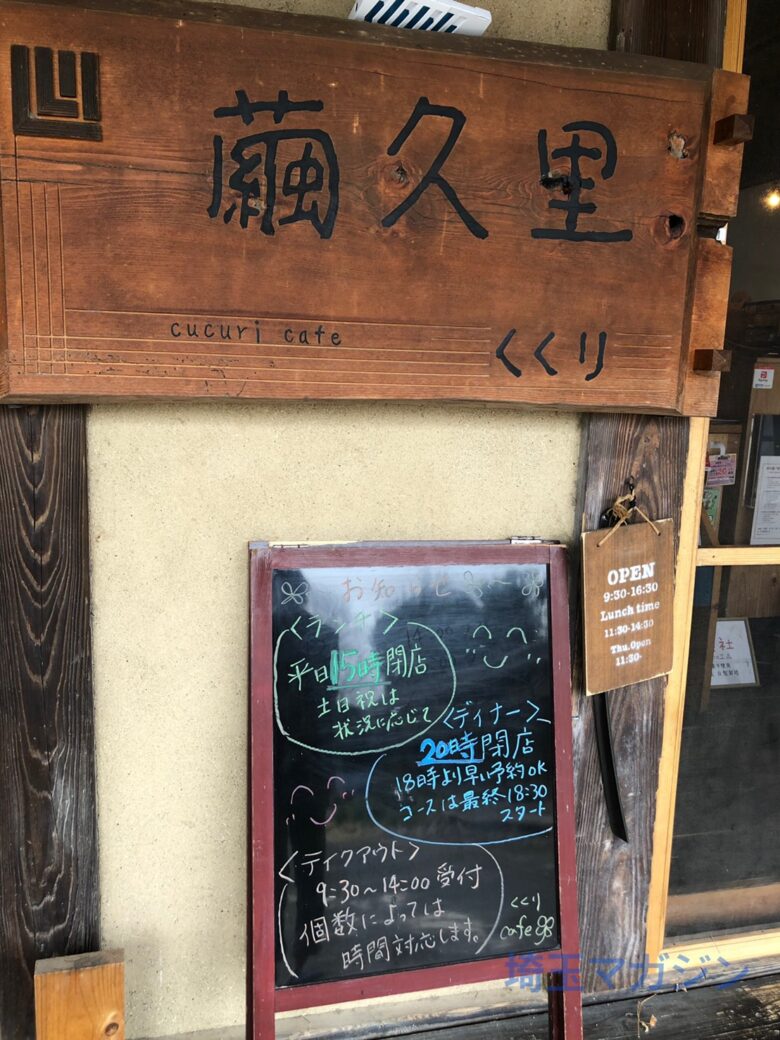 繭久里
cucuri cafe
くくり
OPEN
9:30-16:30
Lunch time
11:30-14:30
Thu.Open
11:30-
お知らせ
<ランチ>
平日15時閉店
土日祝は
状況に応じて
<ディナー>
20時閉店
18時より早い予約OK
コースは最終18:30
スタート
<テイクアウト>
9:30~14:00受付
個数によっては
時間対応します。
くくり
cafe
埼玉マガジン